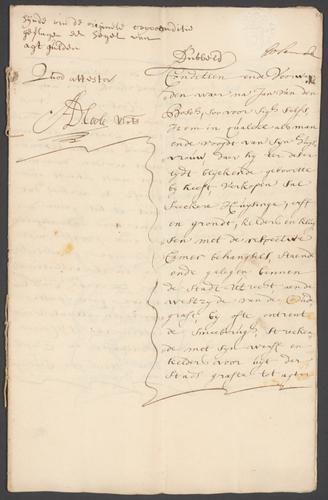 sijnde in de originele coopconditie
geslagen een Segel van
agt gulden
Quod attestor
Nots
Dubbeld
Conditien ende Voorwaer
den waer na Jan van den
Bosch, soo voor sigh selfs
Item in qualite als man
ende Vooght van Sijn Huijs
vrouw, daer hij ten deser
tijdt blijckende geboorte
bij heeft Verkopen Sal
Seeckere Huijsinge, erff
en grondt, kelder en kluij
sen met de respective
Camer behangsel, Staende
ende gelegen binnen
de Stadt Utrecht aende
Westzijde van de Oude
graft bij ofte ontrent
de Smeebrug, Strecken
de met sijn werff en
kelder voor uijt der
Stads grafte tot agter